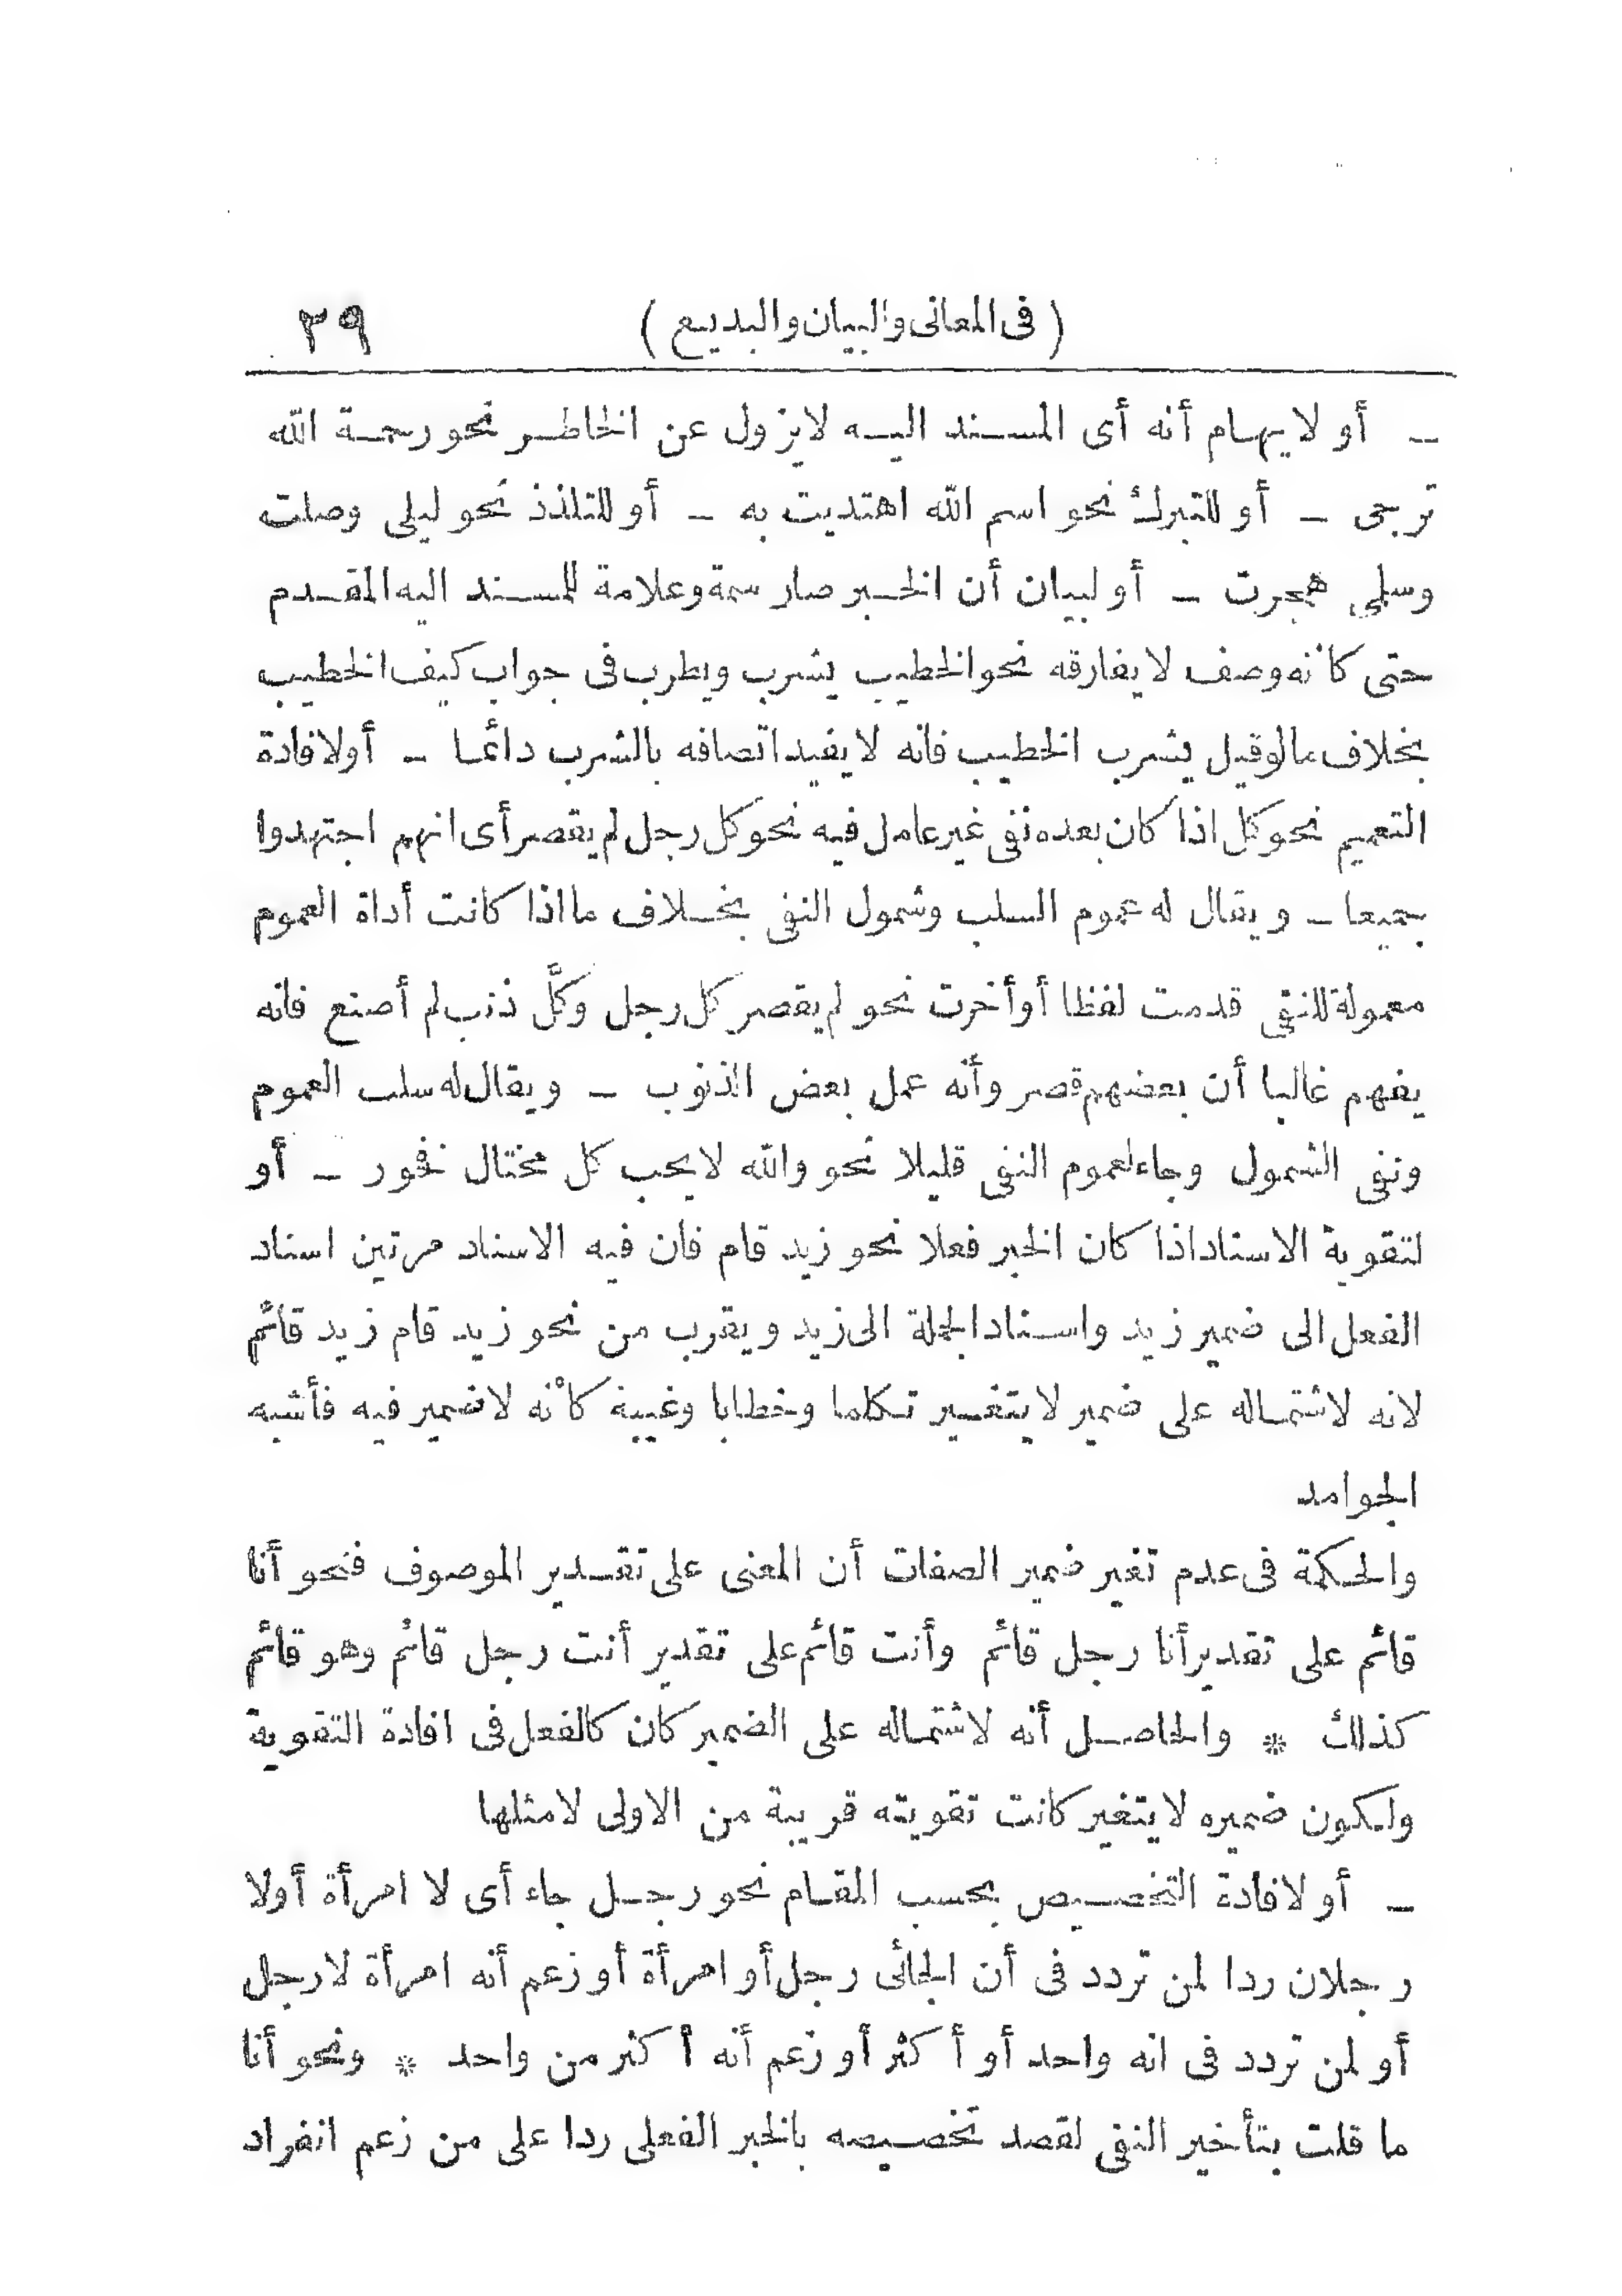 (فى المعانى والبيان والبديع) ٣٩
ـ أو لايهام أنه أى المسند اليه لايزول عن الخاطر نحو رحمة الله
ترجى ـ أو للتبرك نحو اسم الله اهتديت به ـ أو للتلذذ نحو ليلى وصلت
وسلمى هجرت ـ أو لبيان أن الخبر صار سمة وعلامة للمسند اليه المقدم
حتى كأنه وصف لايفارقه نحو الخطيب يشرب ويطرب فى جواب كيف الخطيب
بخلاف مالو قيل يشرب الخطيب فانه لايفيد اتصافه بالشرب دائما ـ أولافادة
التعميم نحو كل اذا كان بعده نفى غير عامل فيه نحو كل رجل لم يقصر أى انهم اجتهدوا
جميعا ـ ويقال له عموم السلب وشمول النفى بخلاف ما اذا كانت أداة العموم
معمولة للنفى قدمت لفظا أو أخرت نحو لم يقصر كل رجل وكلَّ ذنب لم أصنع فانه
يفهم غالبا أن بعضهم قصر وأنه عمل بعض الذنوب ـ ويقال له سلب العموم
ونفى الشمول وجاء لعموم النفى قليلا نحو والله لايحب كل مختال فخور ـ أو
لتقوية الاسناد اذا كان الخبر فعلا نحو زيد قام فان فيه الاسناد مرتين اسناد
الفعل الى ضمير زيد واسناد الجملة الى زيد ويقرب من نحو زيد قام زيد قائم
لانه لاشتماله على ضمير لايتغير تكلما وخطابا وغيبة كأنه لاضمير فيه فأشبه
الجوامد
والحكمة فى عدم تغير ضمير الصفات أن المعنى على تقدير الموصوف فنحو أنا
قائم على تقدير أنا رجل قائم وأنت قائم على تقدير أنت رجل قائم وهو قائم
كذلك * والحاصل أنه لاشتماله على الضمير كان كالفعل فى افادة التقوية
ولكون ضميره لايتغير كانت تقويته قريبة من الاولى لامثلها
ـ أو لافادة التخصيص بحسب المقام نحو رجل جاء أى لا امرأة أولا
رجلان ردا لمن تردد فى أن الجائى رجل أو امرأة أو زعم أنه امرأة لارجل
أو لمن تردد فى انه واحد أو أكثر أو زعم أنه أكثر من واحد * ونحو أنا
ما قلت بتأخير النفى لقصد تخصيصه بالخبر الفعلى ردا على من زعم انفراد